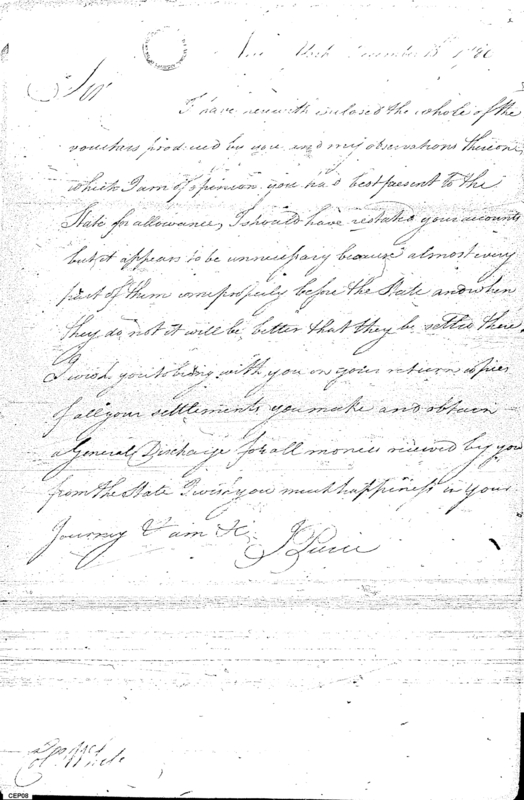 York December 13th 1786
Sir
I have herewith inclosed the whole of the
vouchers produced by you, and my observations thereon,
which I am of opinion you had best present to the
State for allowance, I should have restated your accounts
but it appears to be unnecessary because almost every
part of them come properly before the State and when
they do not it will be better that they be settled there.
I wish you to bring with you on your return copies
of all your settlements you make and obtain
a General Discharge for all monies received by you
from the State I wish you much happiness in your
Journey & am &c
J Pierce
CEP08